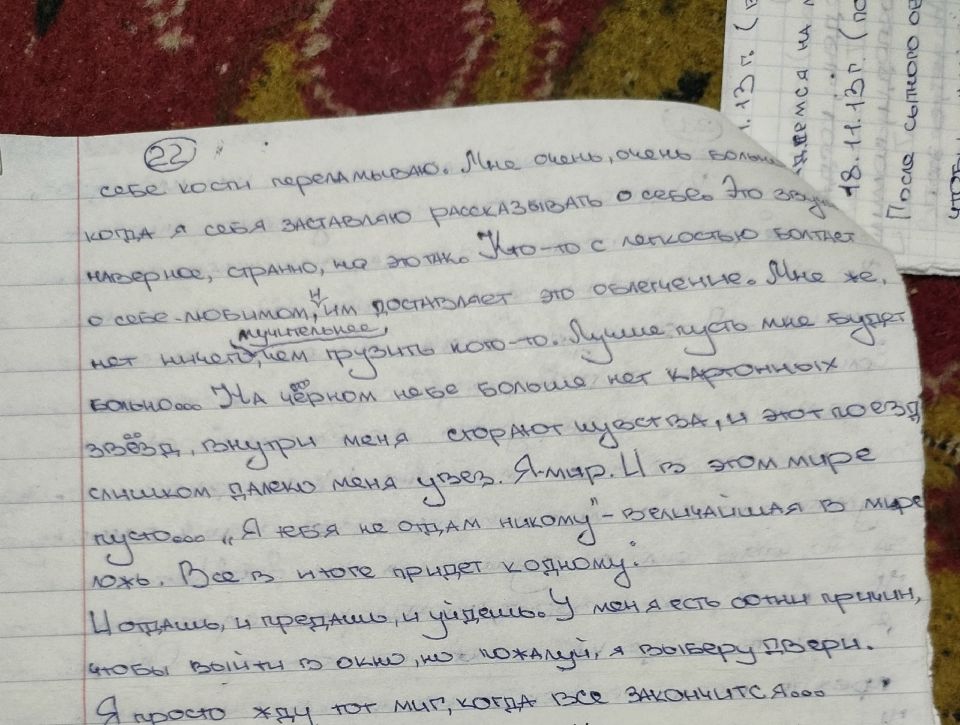 22
себе кости переламываю. Мне очень, очень больно
когда я себя заставляю рассказывать о себе. Это звучи
наверное, странно, но это так. Кто-то с легкостью болтает
о себе-любимом, и им доставляет это облегчение. Мне же,
нет ничего мучительнее, чем грузить кого-то. Лучше пусть мне будет
больно... На чёрном небе больше нет картонных
звёзд, внутри меня сгорают чувства, и этот поезд
слишком далеко меня увез. Я-мир. И в этом мире
пусто... „Я тебя не отдам никому" - величайшая в мире
ложь. Все в итоге придет к одному:
И отдашь, и предашь, и уйдешь. У меня есть сотни причин,
чтобы выйти в окно, но пожалуй, я выберу двери.
Я просто жду тот миг, когда все закончится...
.13 г. (
на
18.11.13 г. (по
После сытного об
чтобы